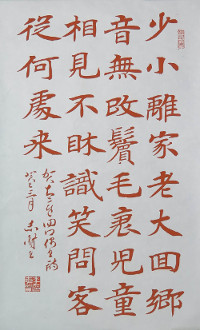 少小離家老大回鄉
音無改鬢毛衰兒童
相見不相識笑問客
從何處来